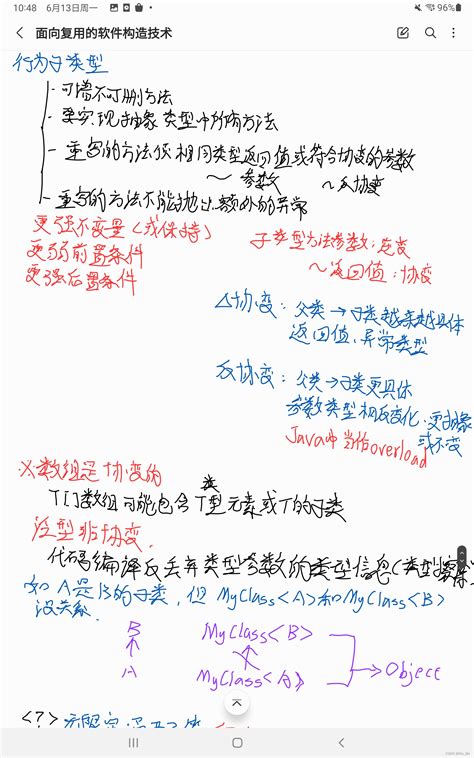 10:48 6月13日周一
96%
面向复用的软件构造技术
行为子类型
- 可增不可删方法
- 要实现抽象类型中所有方法
- 重写的方法 相同类型返回值或符合协变的参数
～参数 ～反协变
- 重写的方法不能抛出额外的异常
更强不变量(或保持)
更弱前置条件
更强后置条件
子类型方法参数:逆变
～返回值:协变
△协变: 父类→子类越来越具体
返回值,异常类型
反协变: 父类→子类更具体
参数类型相反变化,更抽象
或不变
Java中当作overload
※数组是协变的
T[]数组可能包含T型元素或T的子类
泛型非协变.
代码编译后丢弃类型参数的类型信息(类型擦除
如A是B的子类,但MyClass<A>和MyClass<B>
没关系.
B MyClass<B>
A MyClass<A> → Object
<?>